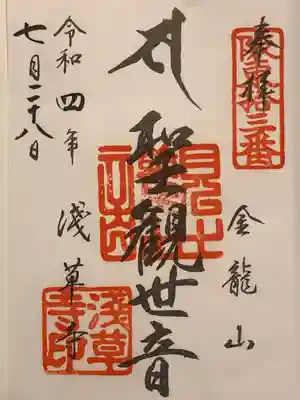 奉拝
坂東十三番
金龍山
聖観世音
浅草寺
浅草寺印
令和四年
七月二十八日